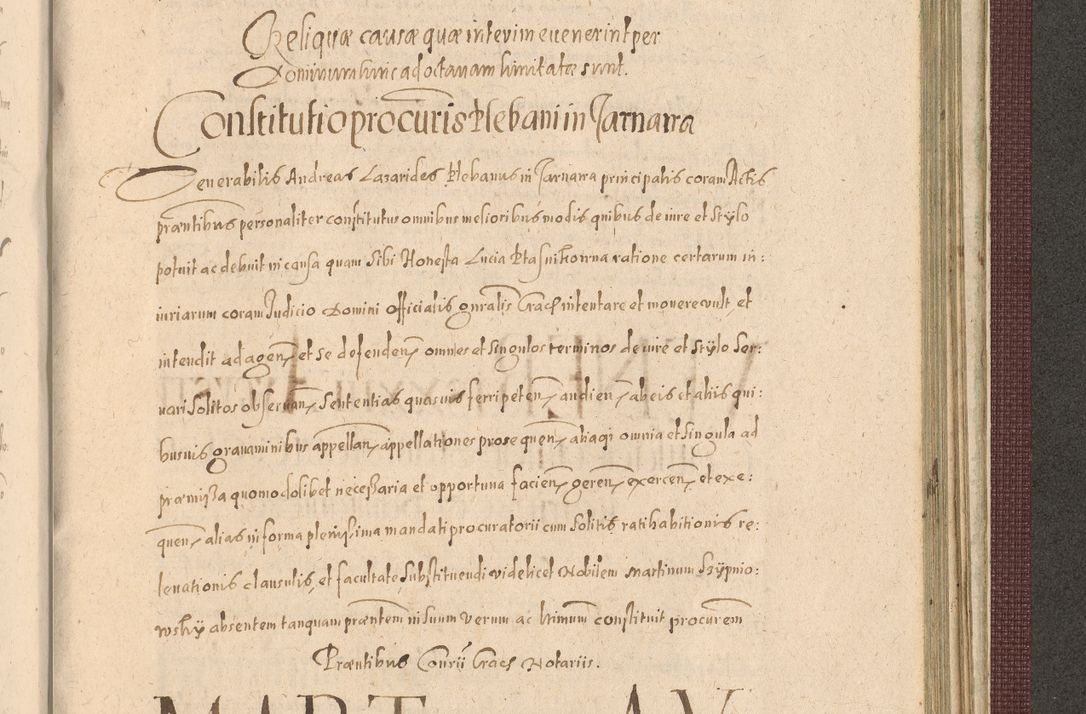 Reliquæ causæ quæ interim euenerint per
Dominum hinc ad octauam limitatæ sunt.
Constitutio procuris Plebani in Jarnawa
Venerabilis Andreas Lazarides Plebanus in Jarnawa principalis coram Actis
præntibus personaliter constitutus omnibus melioribus modis quibus de iure et Stylo
potuit ac debuit in causa quam Sibi Honesta Lucia ratione certarum in:
iuriarum coram Judicio Domini Officialis gnralis Crac intentare et mouere vult, et
intendit ad agen, et se defenden, omnes et Singulos terminos de iure et Stylo Ser:
uari Solitos obseruan, Sententias quasuis ferri peten, audien, ab eis et aliis qui:
busuis grauaminibus appellan, appellationes prosequen, aliaqi omnia et Singula ad
præmißa quomodolibet neceßaria et opportuna facien, geren, exercen, et exe:
quen, alias in forma plenissima mandati procuratorii cum Solitis ratihabitionis re:
leuationis clausulis, et facultate Substituendi videlicet Nobilem Martinum Szypnio:
wsky absentem tanquam præntem in Suum verum ac ltimum constituit procurem
Præntibus Conrii Crac Notariis.
MART AV